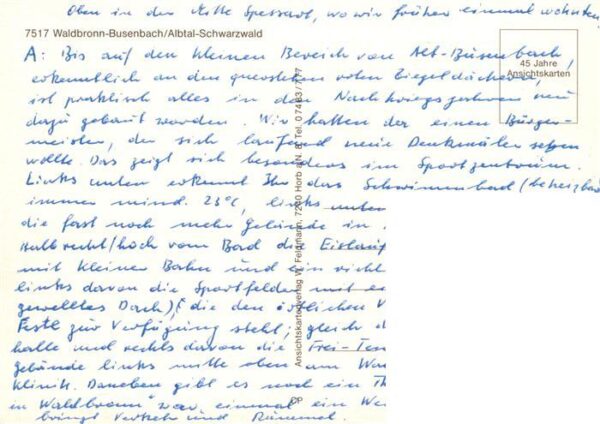 Oben in der Mitte Spessart, wo wir früher einmal wohnten
7517 Waldbronn-Busenbach/Albtal-Schwarzwald
A: Bis auf den kleinen Bereich von Alt-Busenbach,
erkenntlich an den roten Ziegeldächern,
ist praktisch alles in den Nachkriegsjahren neu
dazu gebaut worden. Wir hatten da einen Bürger-
meister, der sich laufend neue Denkmäler setzen
wollte. Das zeigt sich besonders im Sportzentrum.
Links unten erkennt Ihr das Schwimmbad (beheizbar
immer mind. 23°C, links unten
die fast noch mehr Gelände in
Halbrecht/hoch vom Bad die Eislauf
mit kleiner Bahn und ein
links davon die Sportfelder mit
gewelltes Dach), die den örtlichen V
Feste zur Verfügung steht; gleich d
halle und rechts davon die Frei-Ten
gelände links mitte oben am
Klinik. Daneben gibt es noch ein Th
in Waldbronn" war einmal ein We
bringt Verkehr und Rummel.
45 Jahre
Ansichtskarten
Ansichtskartenverlag W. Feldmann, 7240 Horb a. N. 8, Tel. 0 74 83 / 7 77
CP